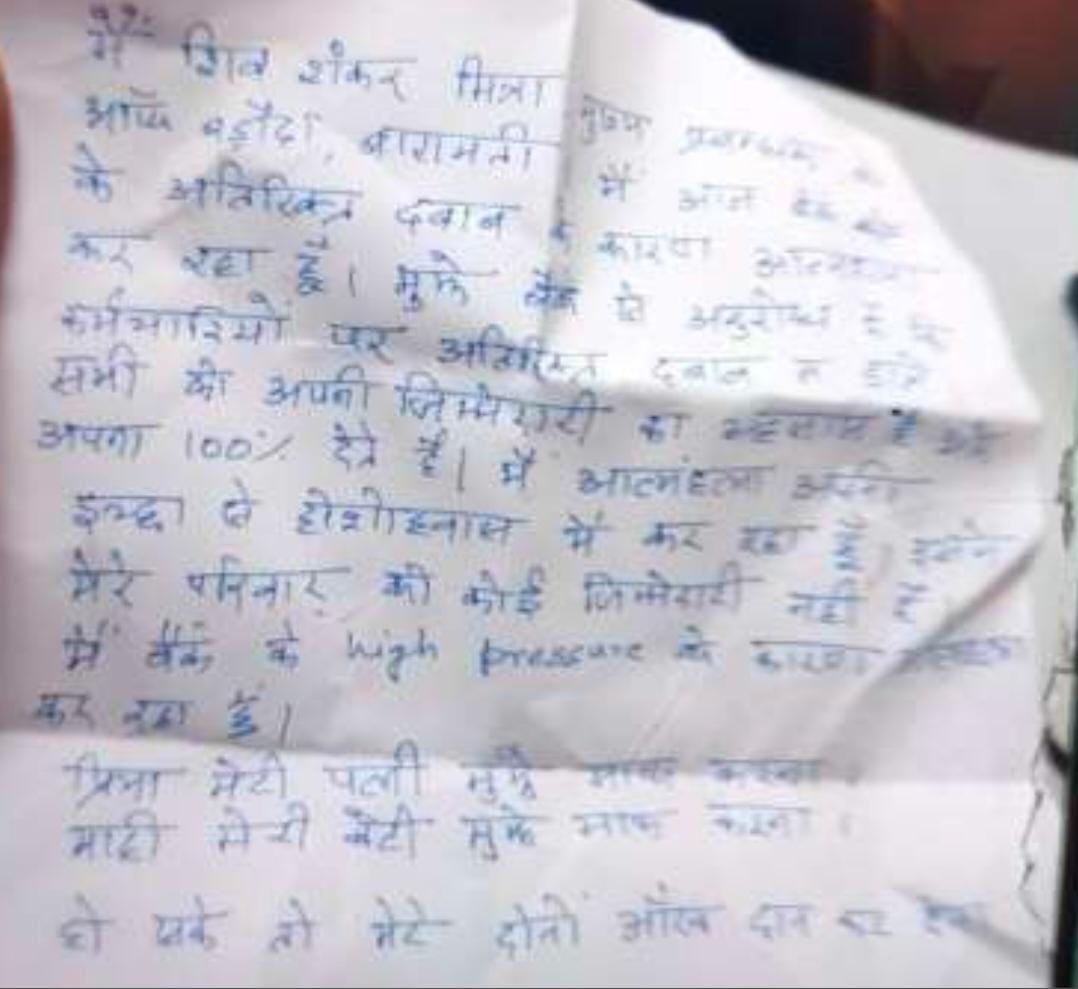 मैं शिव शंकर मित्रा मुख्य प्रबन्धक
ऑफ बड़ौदा, बारामती में आज बैंक
के अतिरिक्त दबाव के कारण आत्महत्या
कर रहा हूँ। मुझे बैंक से अनुरोध है कि
कर्मचारियों पर अतिरिक्त दबाव न डाले
सभी को अपनी जिम्मेदारी का अहसास है और
अपना 100% देते है। मैं आत्महत्या अपनी
इच्छा से होशोहवास में कर रहा हूँ,
मेरे परिवार की कोई जिम्मेदारी नहीं है
मैं बैंक के high pressure के कारण
कर रहा हूँ।
प्रिया मेरी पत्नी मुझे माफ करना।
माही मेरी बेटी मुझे माफ करना।
हो सके तो मेरे दोनों आँख दान कर देना